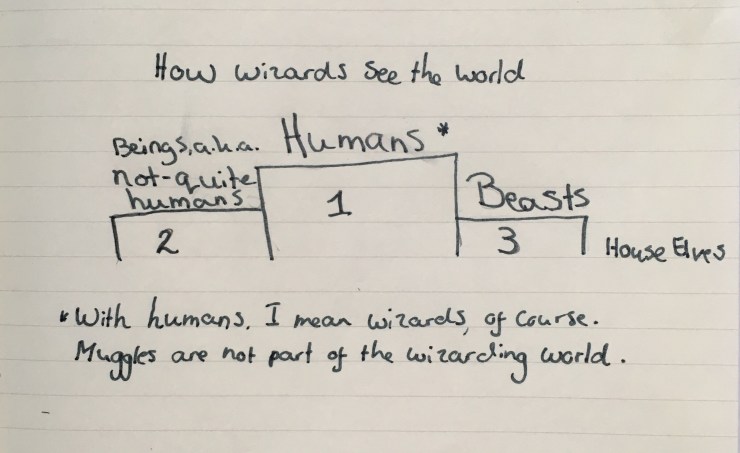 How wizards see the world
Beings, a.k.a. not-quite humans
Humans*
Beasts
1
2
3
House Elves
*With humans, I mean wizards, of course.
Muggles are not part of the wizarding world.